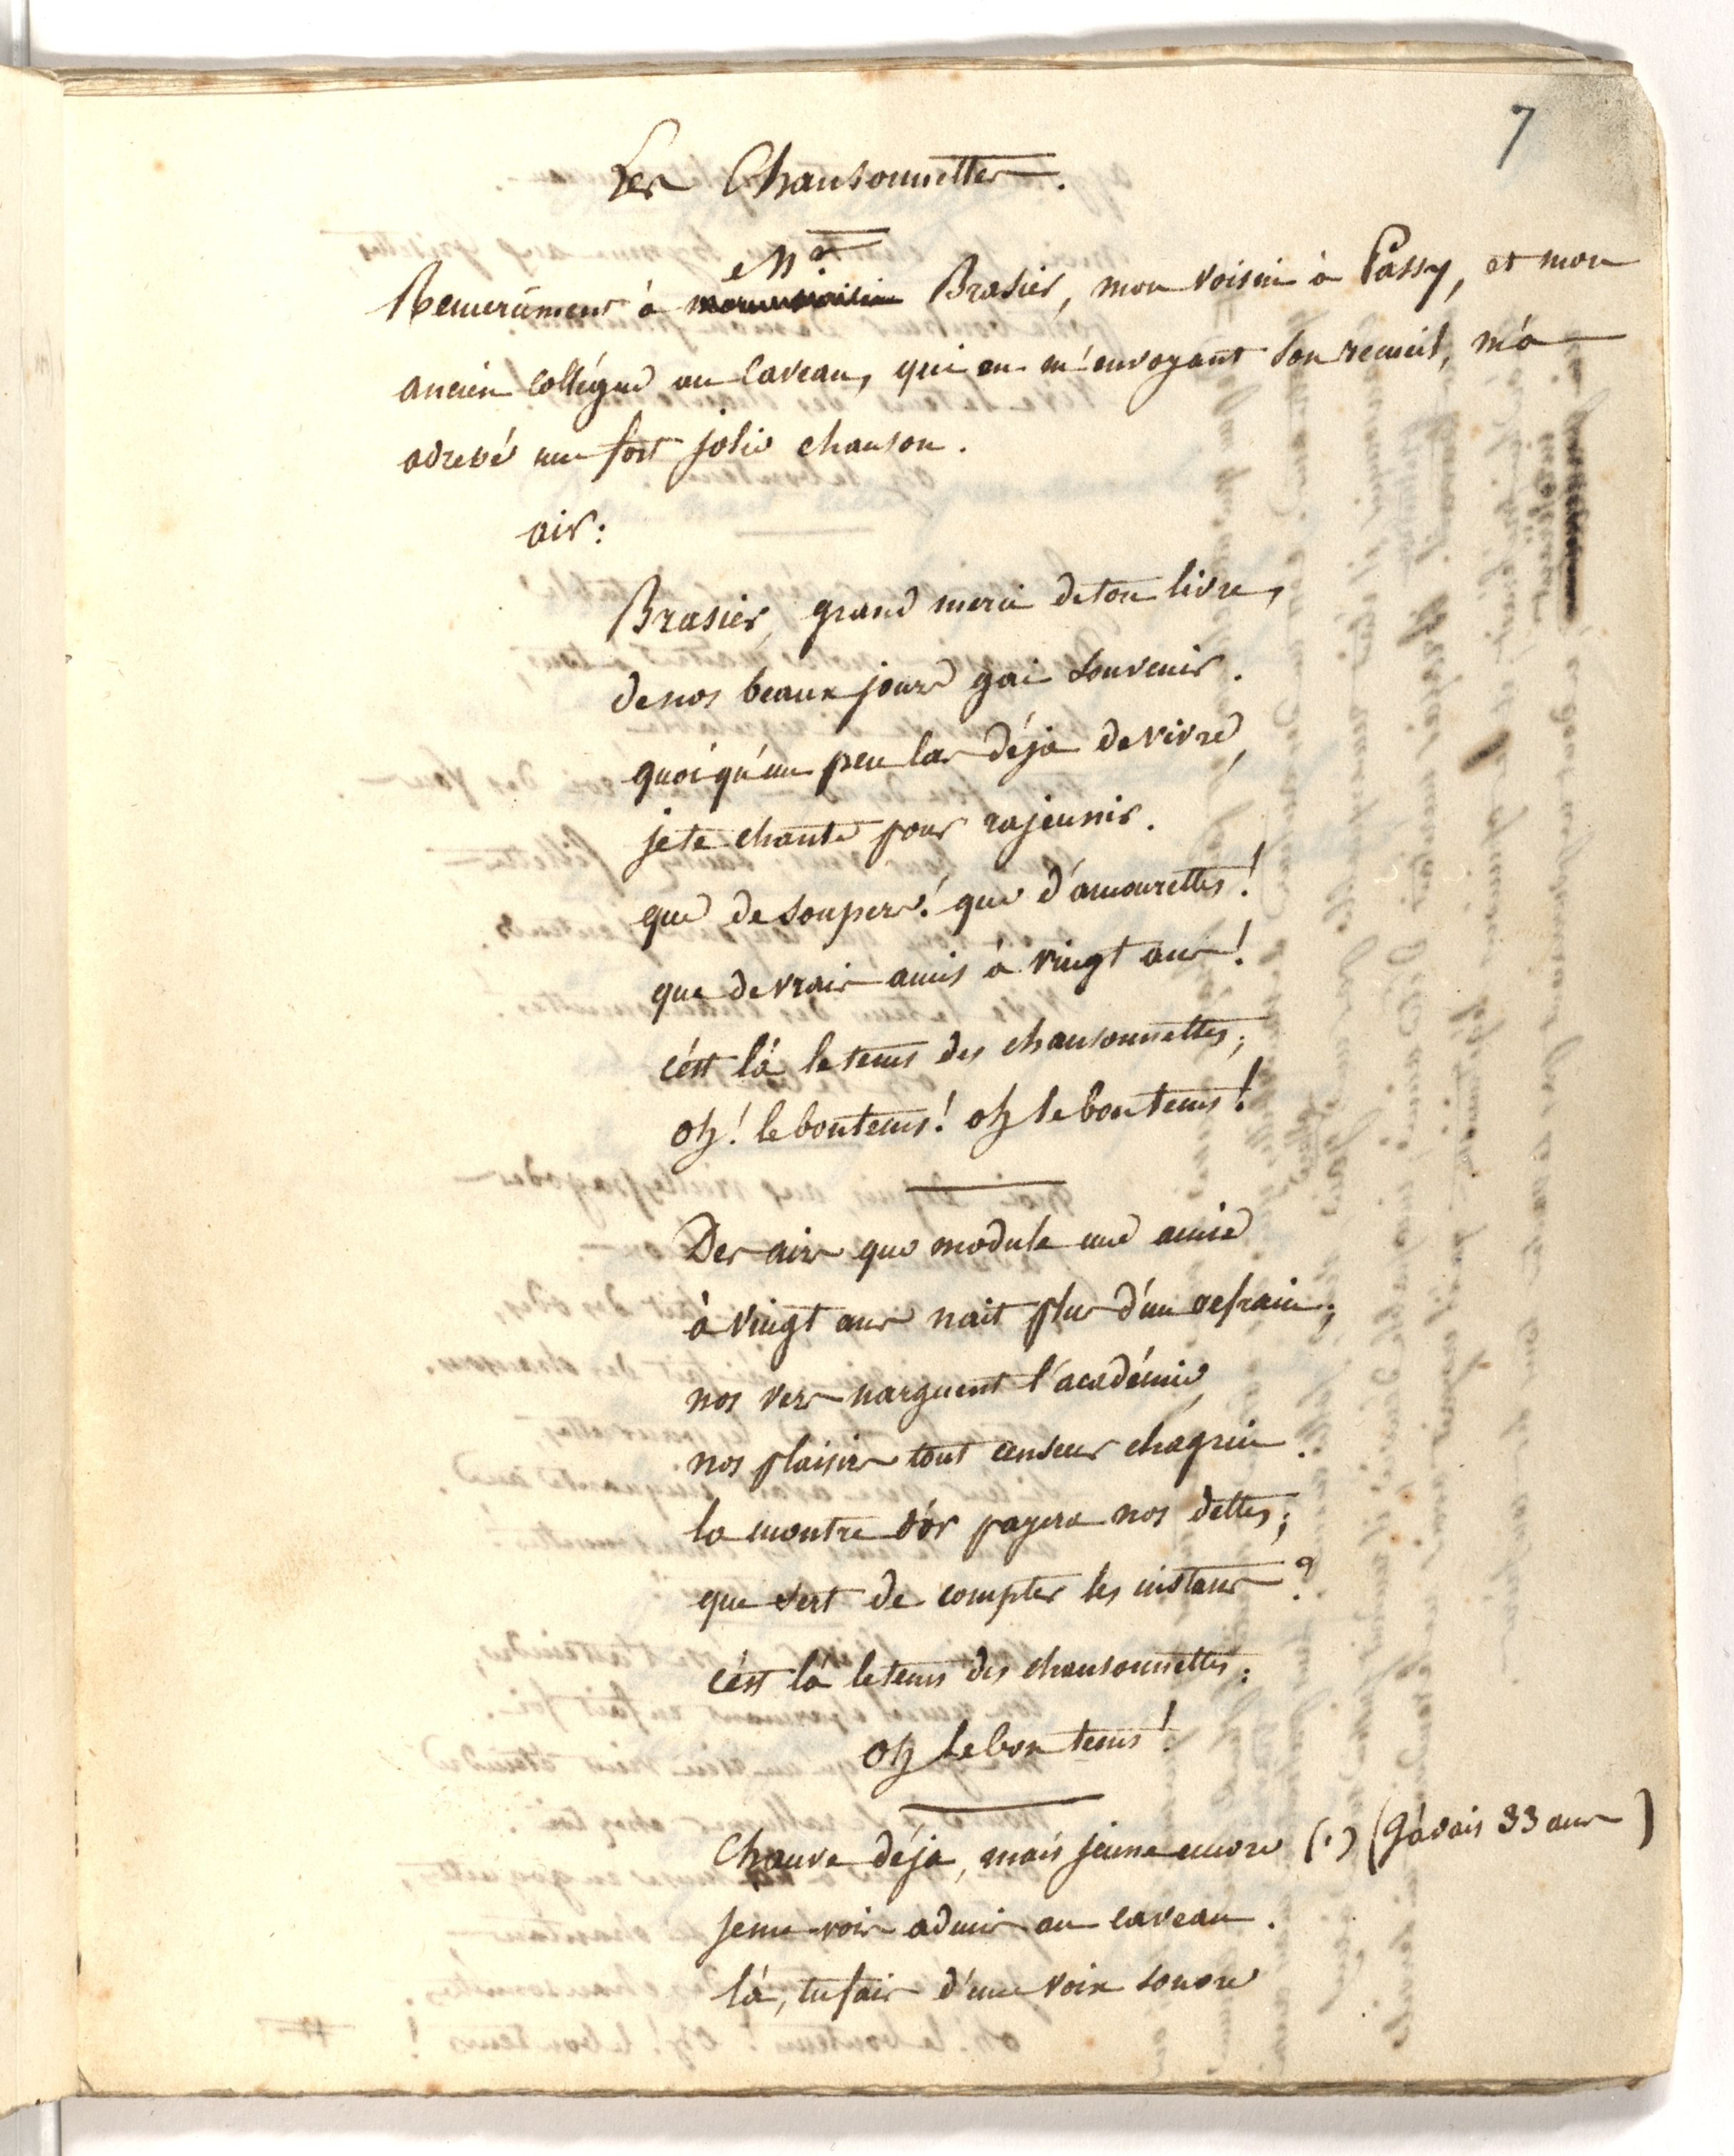 7
Les Chansonnettes.
Mr.
Remercîment à mon voisin Brasier, mon voisin à Passy, et mon
ancien collégue au Caveau, qui en m'envoyant son recueil, m'a
adressé une fort jolie chanson.
air:
Brasier, grand merci de ton livre,
de nos beaux jours gai souvenir.
quoiqu'un peu las déja de vivre,
je te chante pour rajeunir.
que de soupers! que d'amourettes!
que de vrais amis à vingt ans!
c'est là le tems des chansonnettes;
oh! le bon tems! oh le bon tems!
Des airs que module une amie
à vingt ans nait plus d'un refrain;
nos vers narguent l'académie,
nos plaisirs tout censeur chagrin.
la montre d'or payera nos dettes;
que sert de compter les instans?
c'est là le tems des chansonnettes;
oh le bon tems!
Chauve déja, mais jeune encore (1) (J'avais 33 ans)
je me vois admis au caveau.
là, tu fais d'une voix sonore